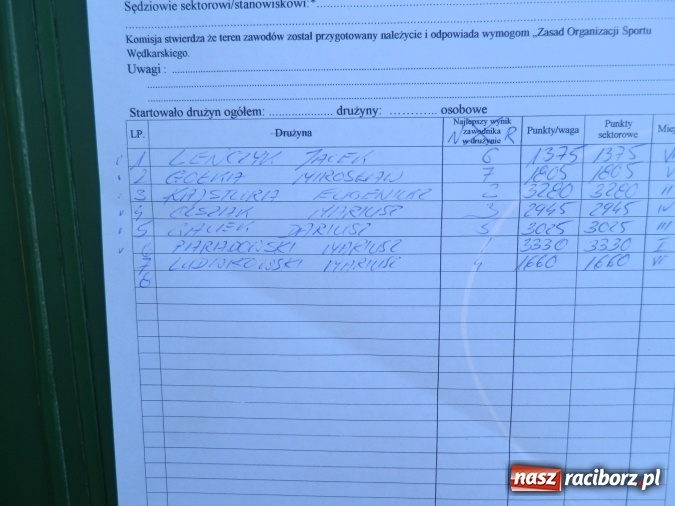 Sędziowie sektorowi/stanowiskowi:
Komisja stwierdza że teren zawodów został przygotowany należycie i odpowiada wymogom „Zasad Organizacji Sportu
Wędkarskiego.
Uwagi :
Startowało drużyn ogółem: ................. drużyny: ............. osobowe
LP. Drużyna Najlepszy wynik zawodnika w drużynie N R Punkty/waga Punkty sektorowe Miej
1 LENCZYK JACEK 6 1375 1375 VII
2 GOŁKA MIROSŁAW 7 1805 1805 V
3 EUGENIUSZ 2 3280 3280 II
4 MARIUSZ 3 2945 2945 IV
5 DARIUSZ 5 3025 3025 III
6 MARIUSZ 1 3330 3330 I
7 MARIUSZ 4 1660 1660 VI
nasz raciborz.pl